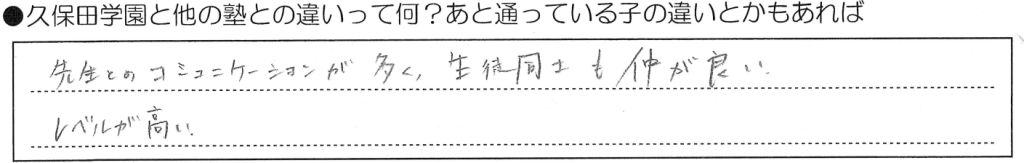 ●久保田学園と他の塾との違いって何？あと通っている子の違いとかもあれば
先生とのコミュニケーションが多く、生徒同士も仲が良い.
レベルが高い.